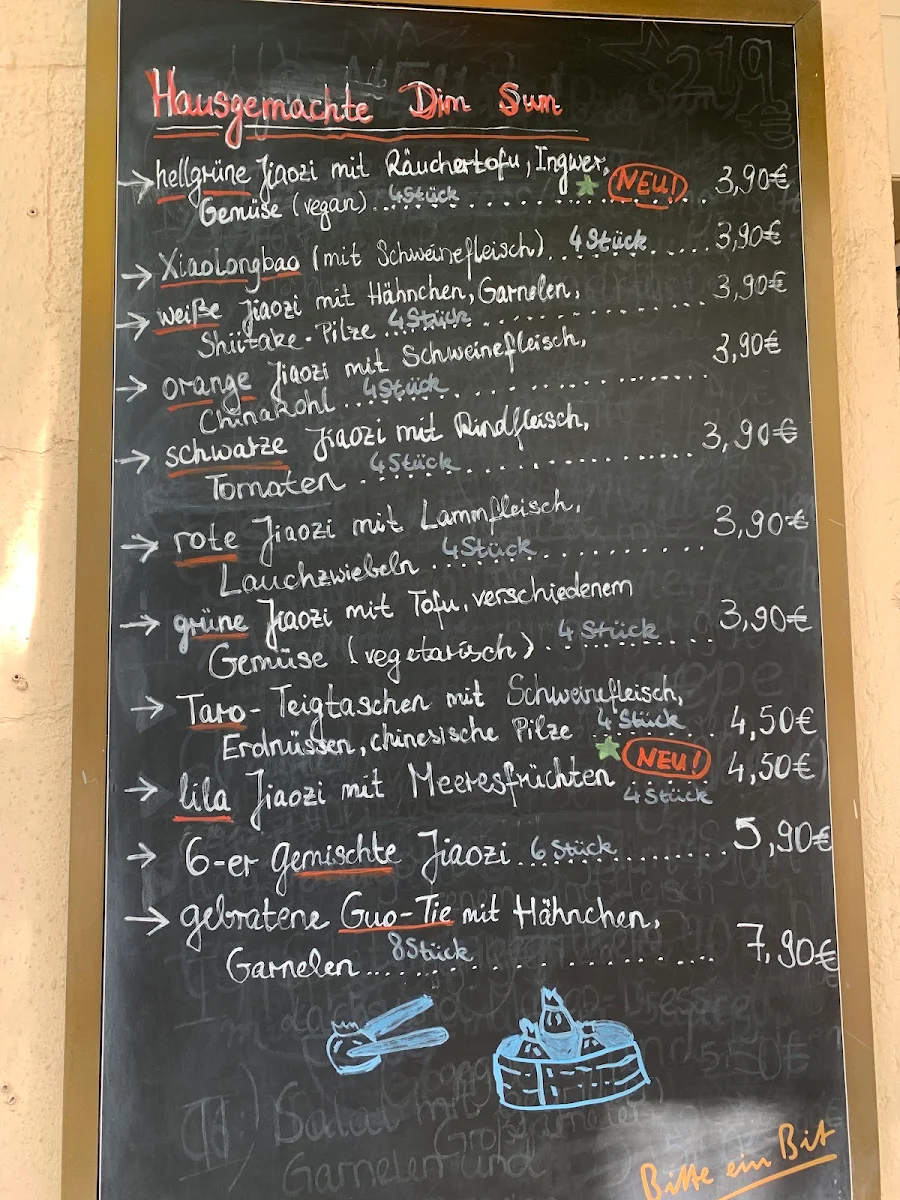 Hausgemachte Dim Sum
→ hellgrüne Jiaozi mit Räuchertofu, Ingwer, NEU!
Gemüse (vegan) 4 Stück ........ 3,90€
→ Xiaolongbao (mit Schweinefleisch). 4 Stück ..... 3,90€
→ weiße Jiaozi mit Hähnchen, Garnelen,
Shiitake-Pilze 4 Stück ........ 3,90€
→ orange Jiaozi mit Schweinefleisch,
Chinakohl 4 Stück ........ 3,90€
→ schwarze Jiaozi mit Rindfleisch,
Tomaten 4 Stück ........ 3,90€
→ rote Jiaozi mit Lammfleisch,
Lauchzwiebeln 4 Stück ........ 3,90€
→ grüne Jiaozi mit Tofu, verschiedenem
Gemüse (vegetarisch) 4 Stück ..... 3,90€
→ Taro-Teigtaschen mit Schweinefleisch,
Erdnüssen, chinesische Pilze 4 Stück ..... 4,50€
→ lila Jiaozi mit Meeresfrüchten NEU! 4 Stück 4,50€
→ 6-er gemischte Jiaozi 6 Stück ........ 5,90€
→ gebratene Guo-Tie mit Hähnchen,
Garnelen 8 Stück ........ 7,90€
Bitte ein Bit